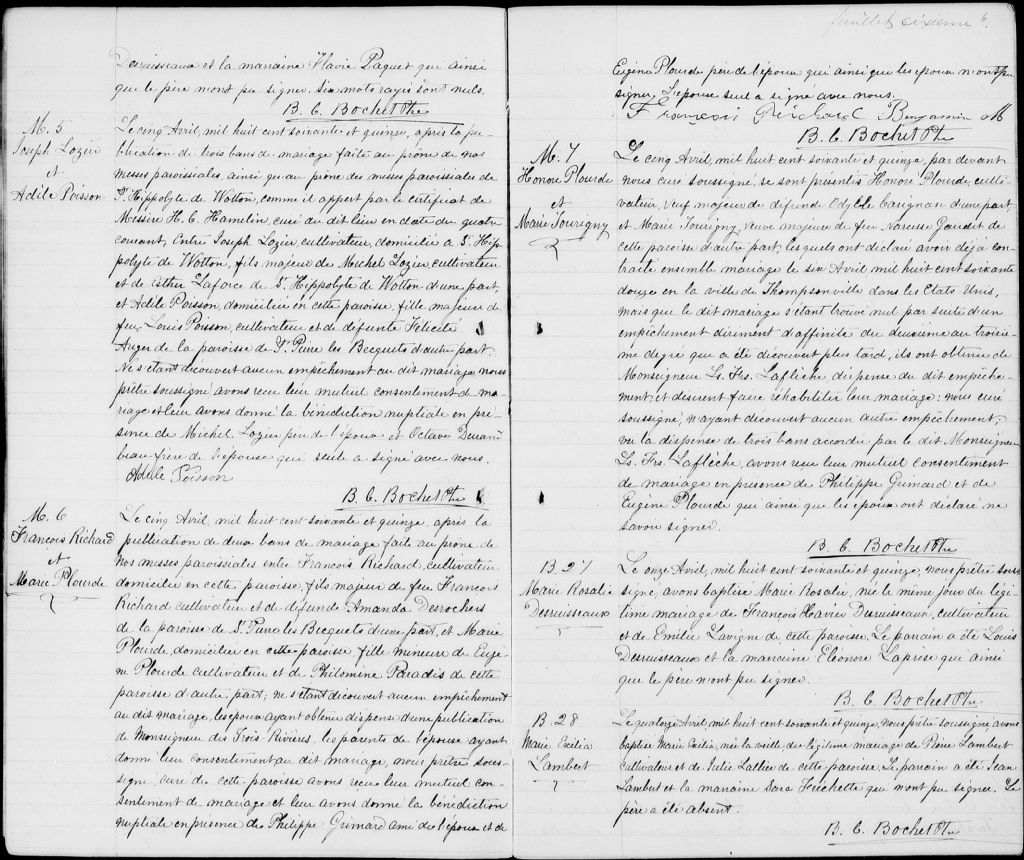 Desruisseaux et la marraine Flavie Paquet qui ainsi
que le père n'ont pu signer. Six mots rayés sont nuls.
B. C. Bochet Ptre
M. 5
Joseph Lozier
et
Adile Poisson
Le cinq Avril, mil huit cent soixante et quinze, après la pu-
blication de trois bans de mariage faite au prône de nos
messes paroissiales, ainsi qu'au prône des messes paroissiales de
St Hippolyte de Wotton, comme il appert par le certificat de
Messire H. C. Hamelin, curé du dit lieu en date du quatre
courant, Entre Joseph Lozier, cultivateur, domicilié à St Hip-
polyte de Wotton, fils majeur de Michel Lozier, cultivateur
et de Esther Laforce de St Hippolyte de Wotton d'une part,
et Adile Poisson, domiciliée en cette paroisse, fille majeure de
feu Louis Poisson, cultivateur et de défunte Félicité
Auger de la paroisse de St Pierre les Becquets d'autre part.
Ne s'étant découvert aucun empêchement au dit mariage, nous
prêtre soussigné avons reçu leur mutuel consentement de ma-
riage et leur avons donné la bénédiction nuptiale en pré-
sence de Michel Lozier père de l'époux et Octave Durand
beau-frère de l'épouse qui seule a signé avec nous.
Adile Poisson
B. C. Bochet Ptre
M. 6
Francois Richard
et
Marie Plourde
Le cinq Avril, mil huit cent soixante et quinze, après la
publication de deux bans de mariage faite au prône de
nos messes paroissiales entre Francois Richard, cultivateur
domicilié en cette paroisse, fils majeur de feu Francois
Richard cultivateur et de défunte Amanda Desrochers
de la paroisse de St Pierre les Becquets d'une part, et Marie
Plourde domiciliée en cette paroisse, fille mineure de Eugè-
ne Plourde cultivateur et de Philomène Paradis de cette
paroisse d'autre part; ne s'étant découvert aucun empêchement
au dit mariage, les époux ayant obtenu dispense d'une publication
de Monseigneur des Trois Rivières, les parents de l'épouse ayant
donné leur consentement au dit mariage, nous prêtre sous-
signé, curé de cette paroisse avons reçu leur mutuel con-
sentement de mariage et leur avons donné la bénédiction
nuptiale en présence de Philippe Grimard ami de l'époux et de
feuillet sixième 6.
Eugène Plourde père de l'épouse qui ainsi que les époux n'ont pu
signer. L'épouse seul a signé avec nous.
François Richard Benjamin M
B. C. Bochet Ptre
M. 7
Honoré Plourde
et
Marie Tourigny
Le cinq Avril, mil huit cent soixante et quinze, par devant
nous curé soussigné, se sont présentés Honoré Plourde, culti-
vateur, veuf majeur de défunte Odyle Carignan d'une part
et Marie Tourigny, veuve majeure de feu Narcisse Gaudet de
cette paroisse d'autre part, lesquels ont déclaré avoir déjà con-
tracté ensemble mariage le six Avril mil huit cent soixante
douze en la ville de Thompsonville dans les Etats Unis,
mais que le dit mariage s'étant trouvé nul par suite d'un
empêchement dirimant d'affinité du deuxième au troisiè-
me degré qui a été découvert plus tard, ils ont obtenu de
Monseigneur Ls. Frs. Laflèche dispense du dit empêche-
ment, et désirent faire réhabiliter leur mariage; nous curé
soussigné, n'ayant découvert aucun autre empêchement,
vu la dispense de trois bans accordée par le dit Monseigneur
Ls. Frs. Laflèche, avons reçu leur mutuel consentement
de mariage en présence de Philippe Grimard et de
Eugène Plourde qui ainsi que les époux ont déclaré ne
savoir signer.
B. C. Bochet Ptre
B. 27
Marie Rosalie
Desruisseaux
Le onze Avril, mil huit cent soixante et quinze, nous prêtre sous-
signé, avons baptisé Marie Rosalie, née le même jour du légi-
time mariage de François Xavier Desruisseaux, cultivateur
et de Emilie Lavigne de cette paroisse. Le parrain a été Louis
Desruisseaux et la marraine Eléonore Laprise qui ainsi
que le père n'ont pu signer.
B. C. Bochet Ptre
B. 28
Marie Exilia
Lambert
Le quatorze Avril, mil huit cent soixante et quinze, nous prêtre soussigné, avons
baptisé Marie Exilia, née la veille du légitime mariage de Pierre Lambert
Cultivateur et de Julie Lallier de cette paroisse. Le parrain a été Jean
Lambert et la marraine Sara Frechette qui n'ont pu signer. Le
père a été absent.
B. C. Bochet Ptre